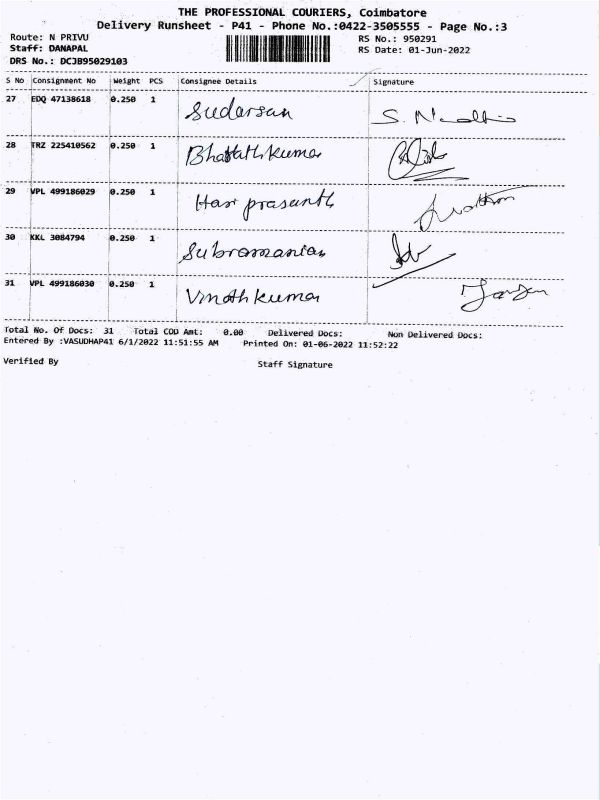 THE PROFESSIONAL COURIERS, Coimbatore
Delivery Runsheet - P41 - Phone No.:0422-3505555 - Page No.:3
Route: N PRIVU RS No.: 950291
Staff: DANAPAL RS Date: 01-Jun-2022
DRS No.: DCJB95029103
S No Consignment No Weight PCS Consignee Details Signature
27 EDQ 47138618 0.250 1 Sudarsan
28 TRZ 225410562 0.250 1 Bharathkumar
29 VPL 499186029 0.250 1 Hari prasanth
30 KKL 3084794 0.250 1 Subramanian
31 VPL 499186030 0.250 1 Vinoth kumar
Total No. Of Docs: 31 Total COD Amt: 0.00 Delivered Docs: Non Delivered Docs:
Entered By :VASUDHAP41 6/1/2022 11:51:55 AM Printed On: 01-06-2022 11:52:22
Verified By Staff Signature